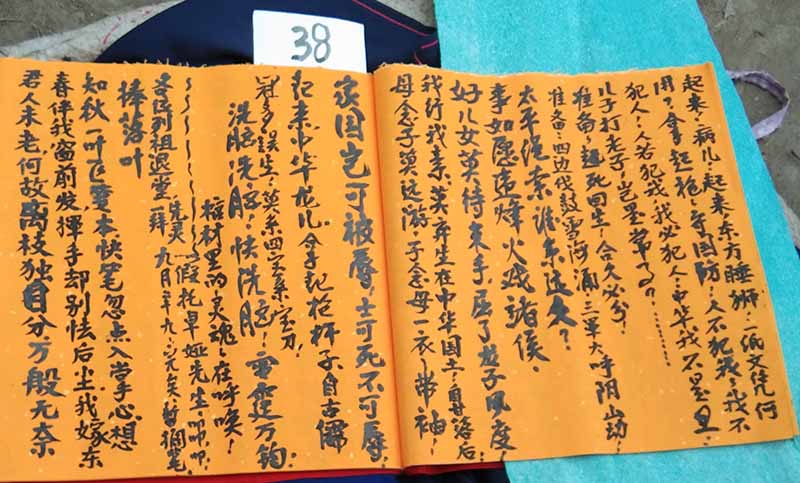 38
起来，病儿起来，东方睡狮，一纸文凭何
用？拿起枪，守国防，人不犯我，我不
犯人，人若犯我，我必犯人，中华我不是
儿子打老子，岂是常了？……
准备，趁死回生，合久必分，
准备，四边伐鼓雪海涌，三军大呼阴山动，
太平绝索谁
事如愿违烽火戏诸侯，
好儿女莫待束手屈了龙子风度，
我行我素英再生在中华国土，
母念子莫远游，子念母一衣带袖！
家国岂可被辱，士可死不可辱，
起来中华龙儿，拿起枪杆子，自古儒
冠多误生，
洗脑洗脑，快洗脑，雷霆万钧，
棺材里的灵魂，在呼唤！
各位列祖退堂
凭灵一假托早娅先生，叩叩，
一拜 九月 暂搁笔
捧落叶
知秋一叶飞坠本快笔忽点入掌手心想
春伴我窗前发挥手却别怯后尘我嫁东
君人未老何故离枝独自分万般无奈